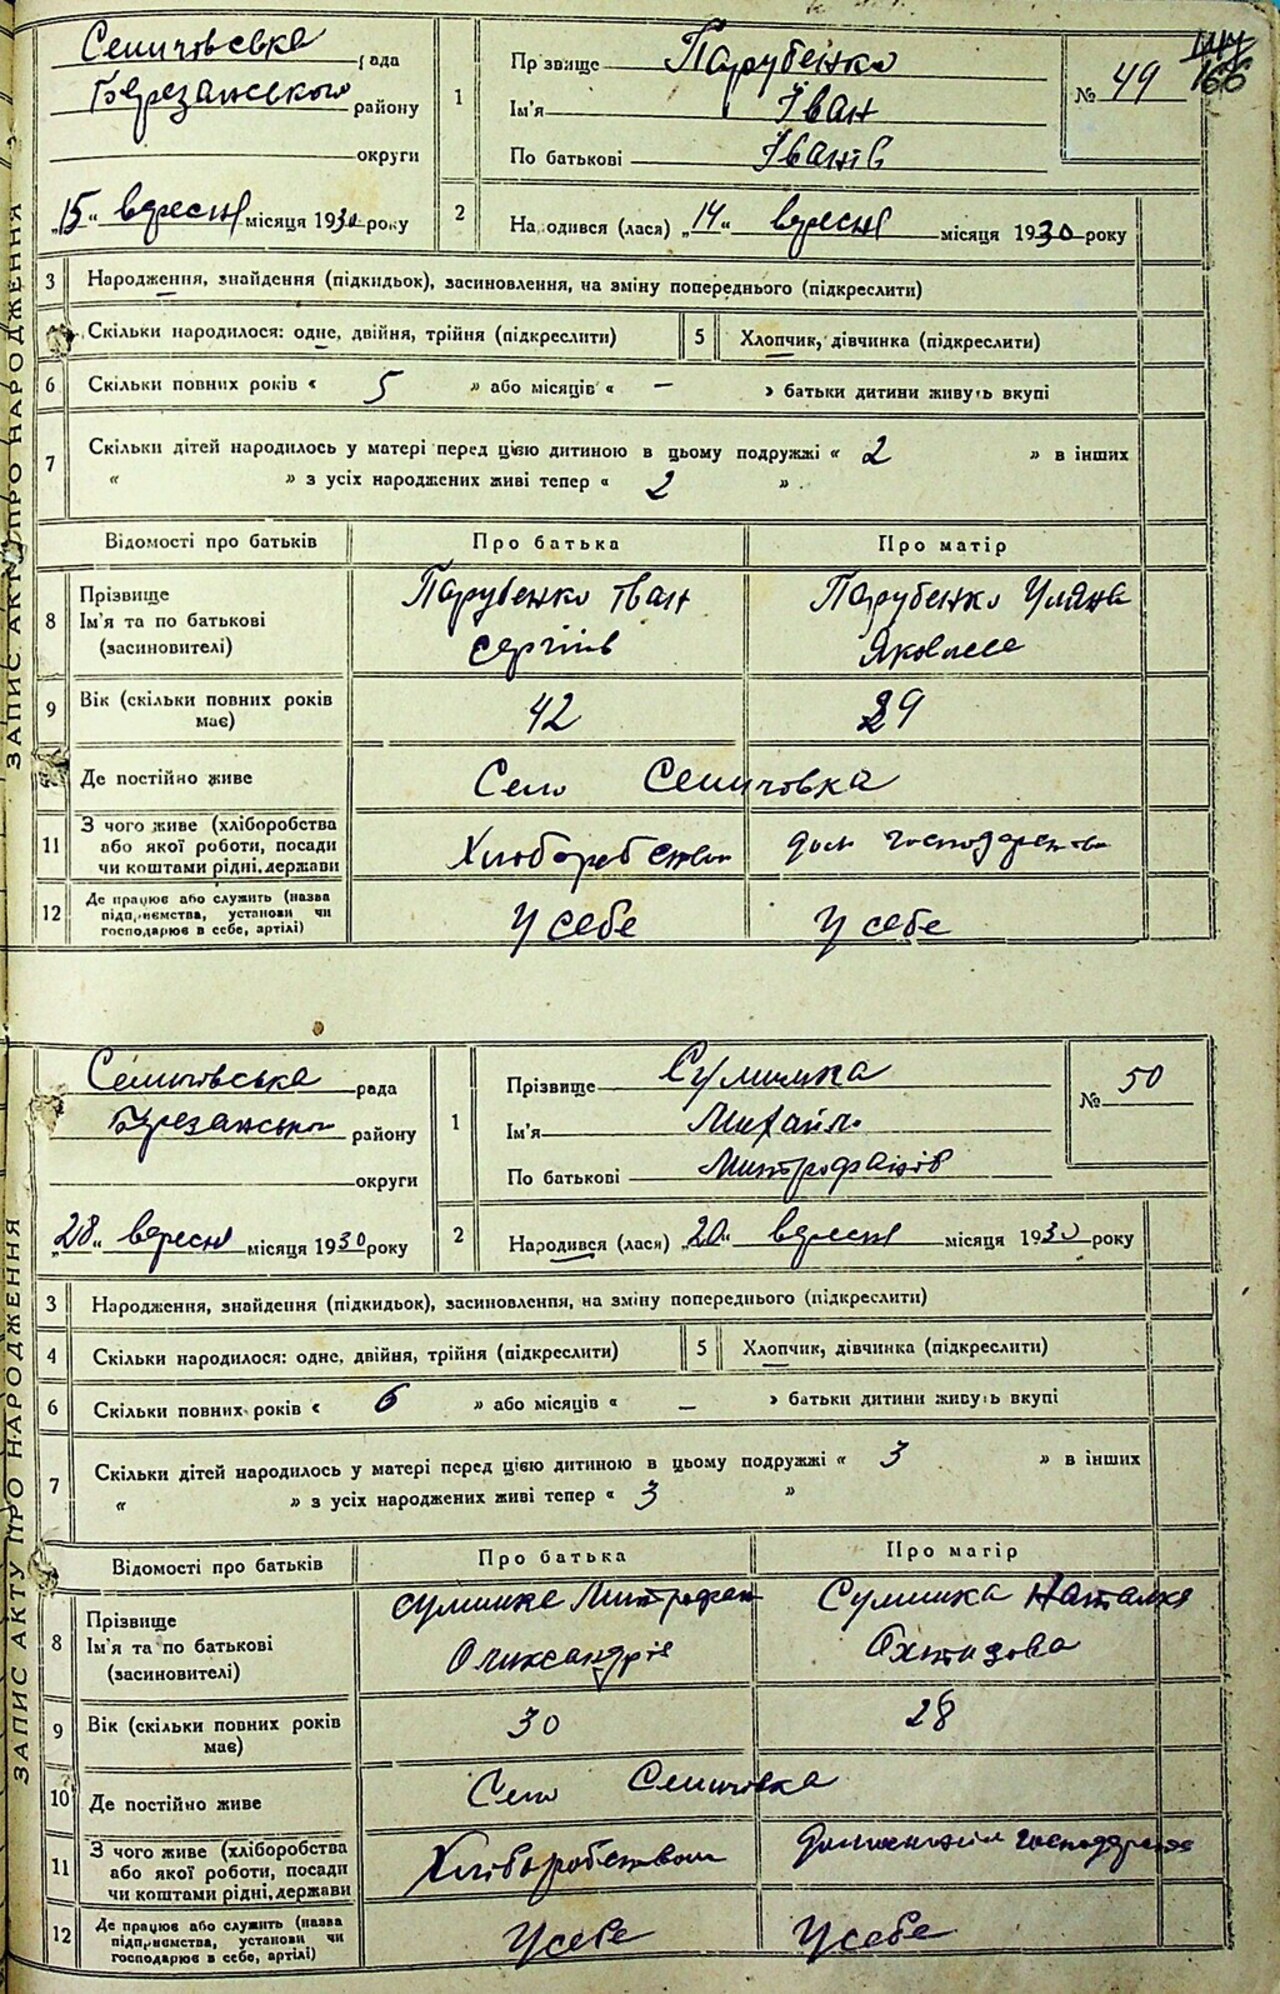 166
ЗАПИС АКТУ ПРО НАРОДЖЕННЯ
Селичівська рада
Березанського району
округи
„15“ вересня місяця 1930 року
1
Прізвище Парубенко
Ім'я Іван
По батькові Іванів
№ 49
2 Народився (лася) „14“ вересня місяця 1930 року
3 Народження, знайдення (підкидьок), засиновлення, на зміну попереднього (підкреслити)
Скільки народилося: одне, двійня, трійня (підкреслити) 5 Хлопчик, дівчинка (підкреслити)
6 Скільки повних років « 5 » або місяців « — » батьки дитини живуть вкупі
7 Скільки дітей народилось у матері перед цією дитиною в цьому подружжі « 2 » в інших
« » з усіх народжених живі тепер « 2 »
Відомості про батьків Про батька Про матір
8 Прізвище Ім'я та по батькові (засиновителі) Парубенко Іван Сергіїв Парубенко Уляна Яковлева
9 Вік (скільки повних років має) 42 29
Де постійно живе Село Селичівка
11 З чого живе (хліборобства або якої роботи, посади чи коштами рідні, держави Хліборобством дом господарство
12 Де працює або служить (назва підприємства, установи чи господарює в себе, артілі) У себе У себе
ЗАПИС АКТУ ПРО НАРОДЖЕННЯ
Селичівська рада
Березанського району
округи
„28“ вересня місяця 1930 року
1
Прізвище Сулимка
Ім'я Михайло
По батькові Митрофанів
№ 50
2 Народився (лася) „20“ вересня місяця 1930 року
3 Народження, знайдення (підкидьок), засиновлення, на зміну попереднього (підкреслити)
4 Скільки народилося: одне, двійня, трійня (підкреслити) 5 Хлопчик, дівчинка (підкреслити)
6 Скільки повних років « 6 » або місяців « — » батьки дитини живуть вкупі
7 Скільки дітей народилось у матері перед цією дитиною в цьому подружжі « 3 » в інших
« » з усіх народжених живі тепер « 3 »
Відомості про батьків Про батька Про матір
8 Прізвище Ім'я та по батькові (засиновителі) Сулимка Митрофан Олександрів Сулимка Наталка
9 Вік (скільки повних років має) 30 28
10 Де постійно живе Село Селичівка
11 З чого живе (хліборобства або якої роботи, посади чи коштами рідні, держави Хліборобством
12 Де працює або служить (назва підприємства, установи чи господарює в себе, артілі) У себе У себе